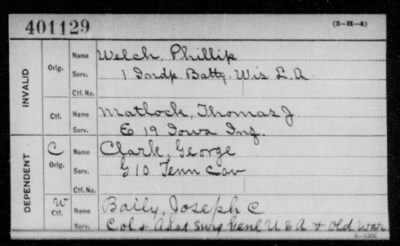 401129
(3-H-4)
INVALID
Orig.
Name Welch, Phillip
Serv. 1 Indp. Batty. Wis L.A
Ctf. No.
Ctf.
Name Matlock, Thomas J
Serv. E 19 Iowa Inf.
DEPENDENT
C
Orig.
Name Clark, George
Serv. G 10 Tenn Cav
Ctf. No.
W
Ctf.
Name Baily, Joseph C
Serv. Col & Asst Surg Genl U S A & Old War